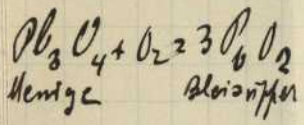 Pb₃O₄ + O₂ = 3 PbO₂
Menige Bleisuffer